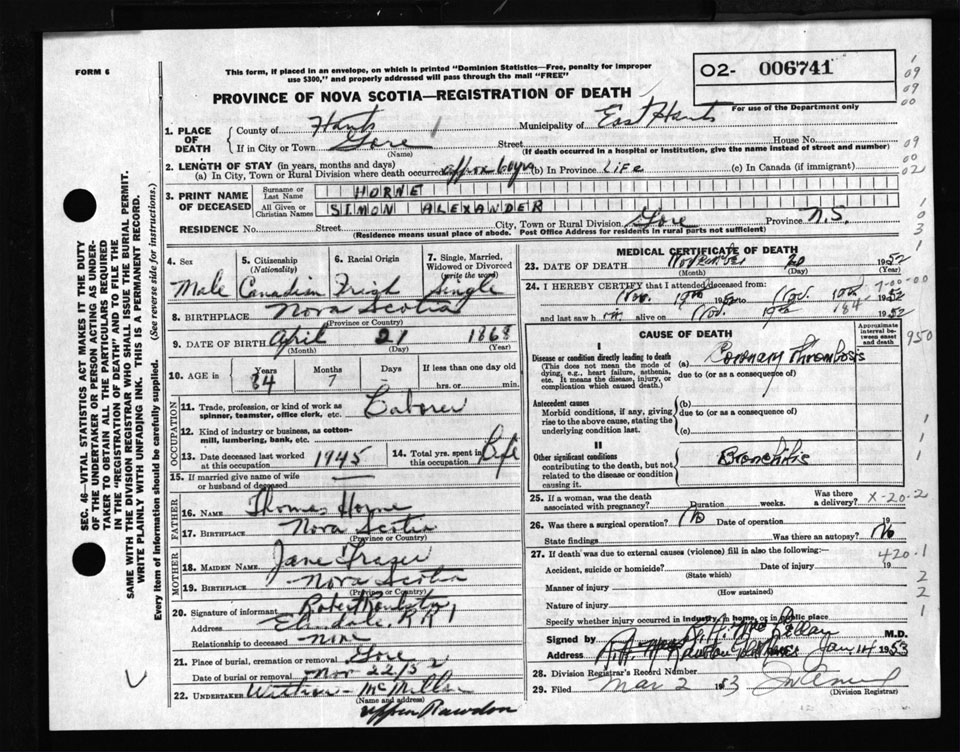 FORM 6
This form, if placed in an envelope, on which is printed "Dominion Statistics—Free, penalty for improper
use $300," and properly addressed will pass through the mail "FREE"
O2- 006741
PROVINCE OF NOVA SCOTIA—REGISTRATION OF DEATH
For use of the Department only
1. PLACE OF DEATH
County of Hants Municipality of East Hants
If in City or Town Gore Street House No.
(Name) (If death occurred in a hospital or institution, give the name instead of street and number)
2. LENGTH OF STAY (in years, months and days)
(a) In City, Town or Rural Division where death occurred approx 60 yrs (b) In Province Life (c) In Canada (if immigrant)
3. PRINT NAME OF DECEASED
Surname or Last Name HORNE
All Given or Christian Names SIMON ALEXANDER
RESIDENCE No. Street City, Town or Rural Division Gore Province N.S.
(Residence means usual place of abode. Post Office Address for residents in rural parts not sufficient)
4. Sex
Male
5. Citizenship
(Nationality)
Canadian
6. Racial Origin
7. Single, Married,
Widowed or Divorced
(write the word)
Single
8. BIRTHPLACE Nova Scotia
(Province or Country)
9. DATE OF BIRTH April 21 1868
(Month) (Day) (Year)
10. AGE in Years Months Days If less than one day old
84 7 - hrs. or min.
OCCUPATION
11. Trade, profession, or kind of work as
spinner, teamster, office clerk, etc. Laborer
12. Kind of industry or business, as cotton-
mill, lumbering, bank, etc.
13. Date deceased last worked
at this occupation 1945
14. Total yrs. spent in
this occupation Life
15. If married give name of wife
or husband of deceased
FATHER
16. NAME Thomas Horne
17. BIRTHPLACE Nova Scotia
(Province or Country)
MOTHER
18. MAIDEN NAME Jane Frazer
19. BIRTHPLACE Nova Scotia
(Province or Country)
20. Signature of informant Robert
Address RR 1
Relationship to deceased
21. Place of burial, cremation or removal Gore
Date of burial or removal Nov 22/52
22. UNDERTAKER McMillan
(Name and address)
Upper Rawdon
MEDICAL CERTIFICATE OF DEATH
23. DATE OF DEATH November 20 1952
(Month) (Day) (Year)
24. I HEREBY CERTIFY that I attended deceased from:
Nov. 19th 1952 to Nov. 1952
and last saw h alive on Nov. 19th 1952
7-00-00
184
CAUSE OF DEATH
Approximate
interval be-
tween onset
and death
950
I
Disease or condition directly leading to death
(This does not mean the mode of
dying, e.g., heart failure, asthenia,
etc. It means the disease, injury, or
complication which caused death.)
(a) Coronary Thrombosis
due to (or as a consequence of)
Antecedent causes
Morbid conditions, if any, giving
rise to the above cause, stating the
underlying condition last.
(b)
due to (or as a consequence of)
(c)
II
Other significant conditions
contributing to the death, but not
related to the disease or condition
causing it.
Bronchitis
25. If a woman, was the death
associated with pregnancy? Duration weeks. Was there
a delivery?
X-20-2
26. Was there a surgical operation? No Date of operation 19
State findings Was there an autopsy? No
27. If death was due to external causes (violence) fill in also the following: 420-1
Accident, suicide or homicide? Date of injury 19
(State which)
Manner of injury
(How sustained)
Nature of injury
Specify whether injury occurred in industry, in home, or in public place
Signed by M.D.
Address Jan 14 1953
28. Division Registrar's Record Number
29. Filed Mar 2 1953
(Division Registrar)
SEC. 46—VITAL STATISTICS ACT MAKES IT THE DUTY
OF THE UNDERTAKER OR PERSON ACTING AS UNDER-
TAKER TO OBTAIN ALL THE PARTICULARS REQUIRED
IN THE "REGISTRATION OF DEATH" AND TO FILE THE
SAME WITH THE DIVISION REGISTRAR WHO SHALL ISSUE THE BURIAL PERMIT.
WRITE PLAINLY WITH UNFADING INK. THIS IS A PERMANENT RECORD.
Every item of information should be carefully supplied. (See reverse side for instructions.)